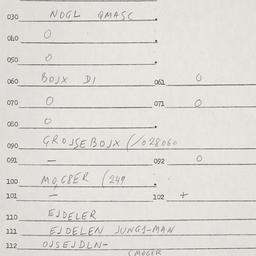 030 NOGL QMASC
040 O
050 O
060 BOJX DI 061 O
070 O 071 O
080 O
090 GROJSEBOJX (/028060
091 — 092 O
100 MOGBER (249
101 — 102 +
110 EJDELER
111 EJDELEN JUNGJ-MAN
112 OJSEJDLN-
(MOGER